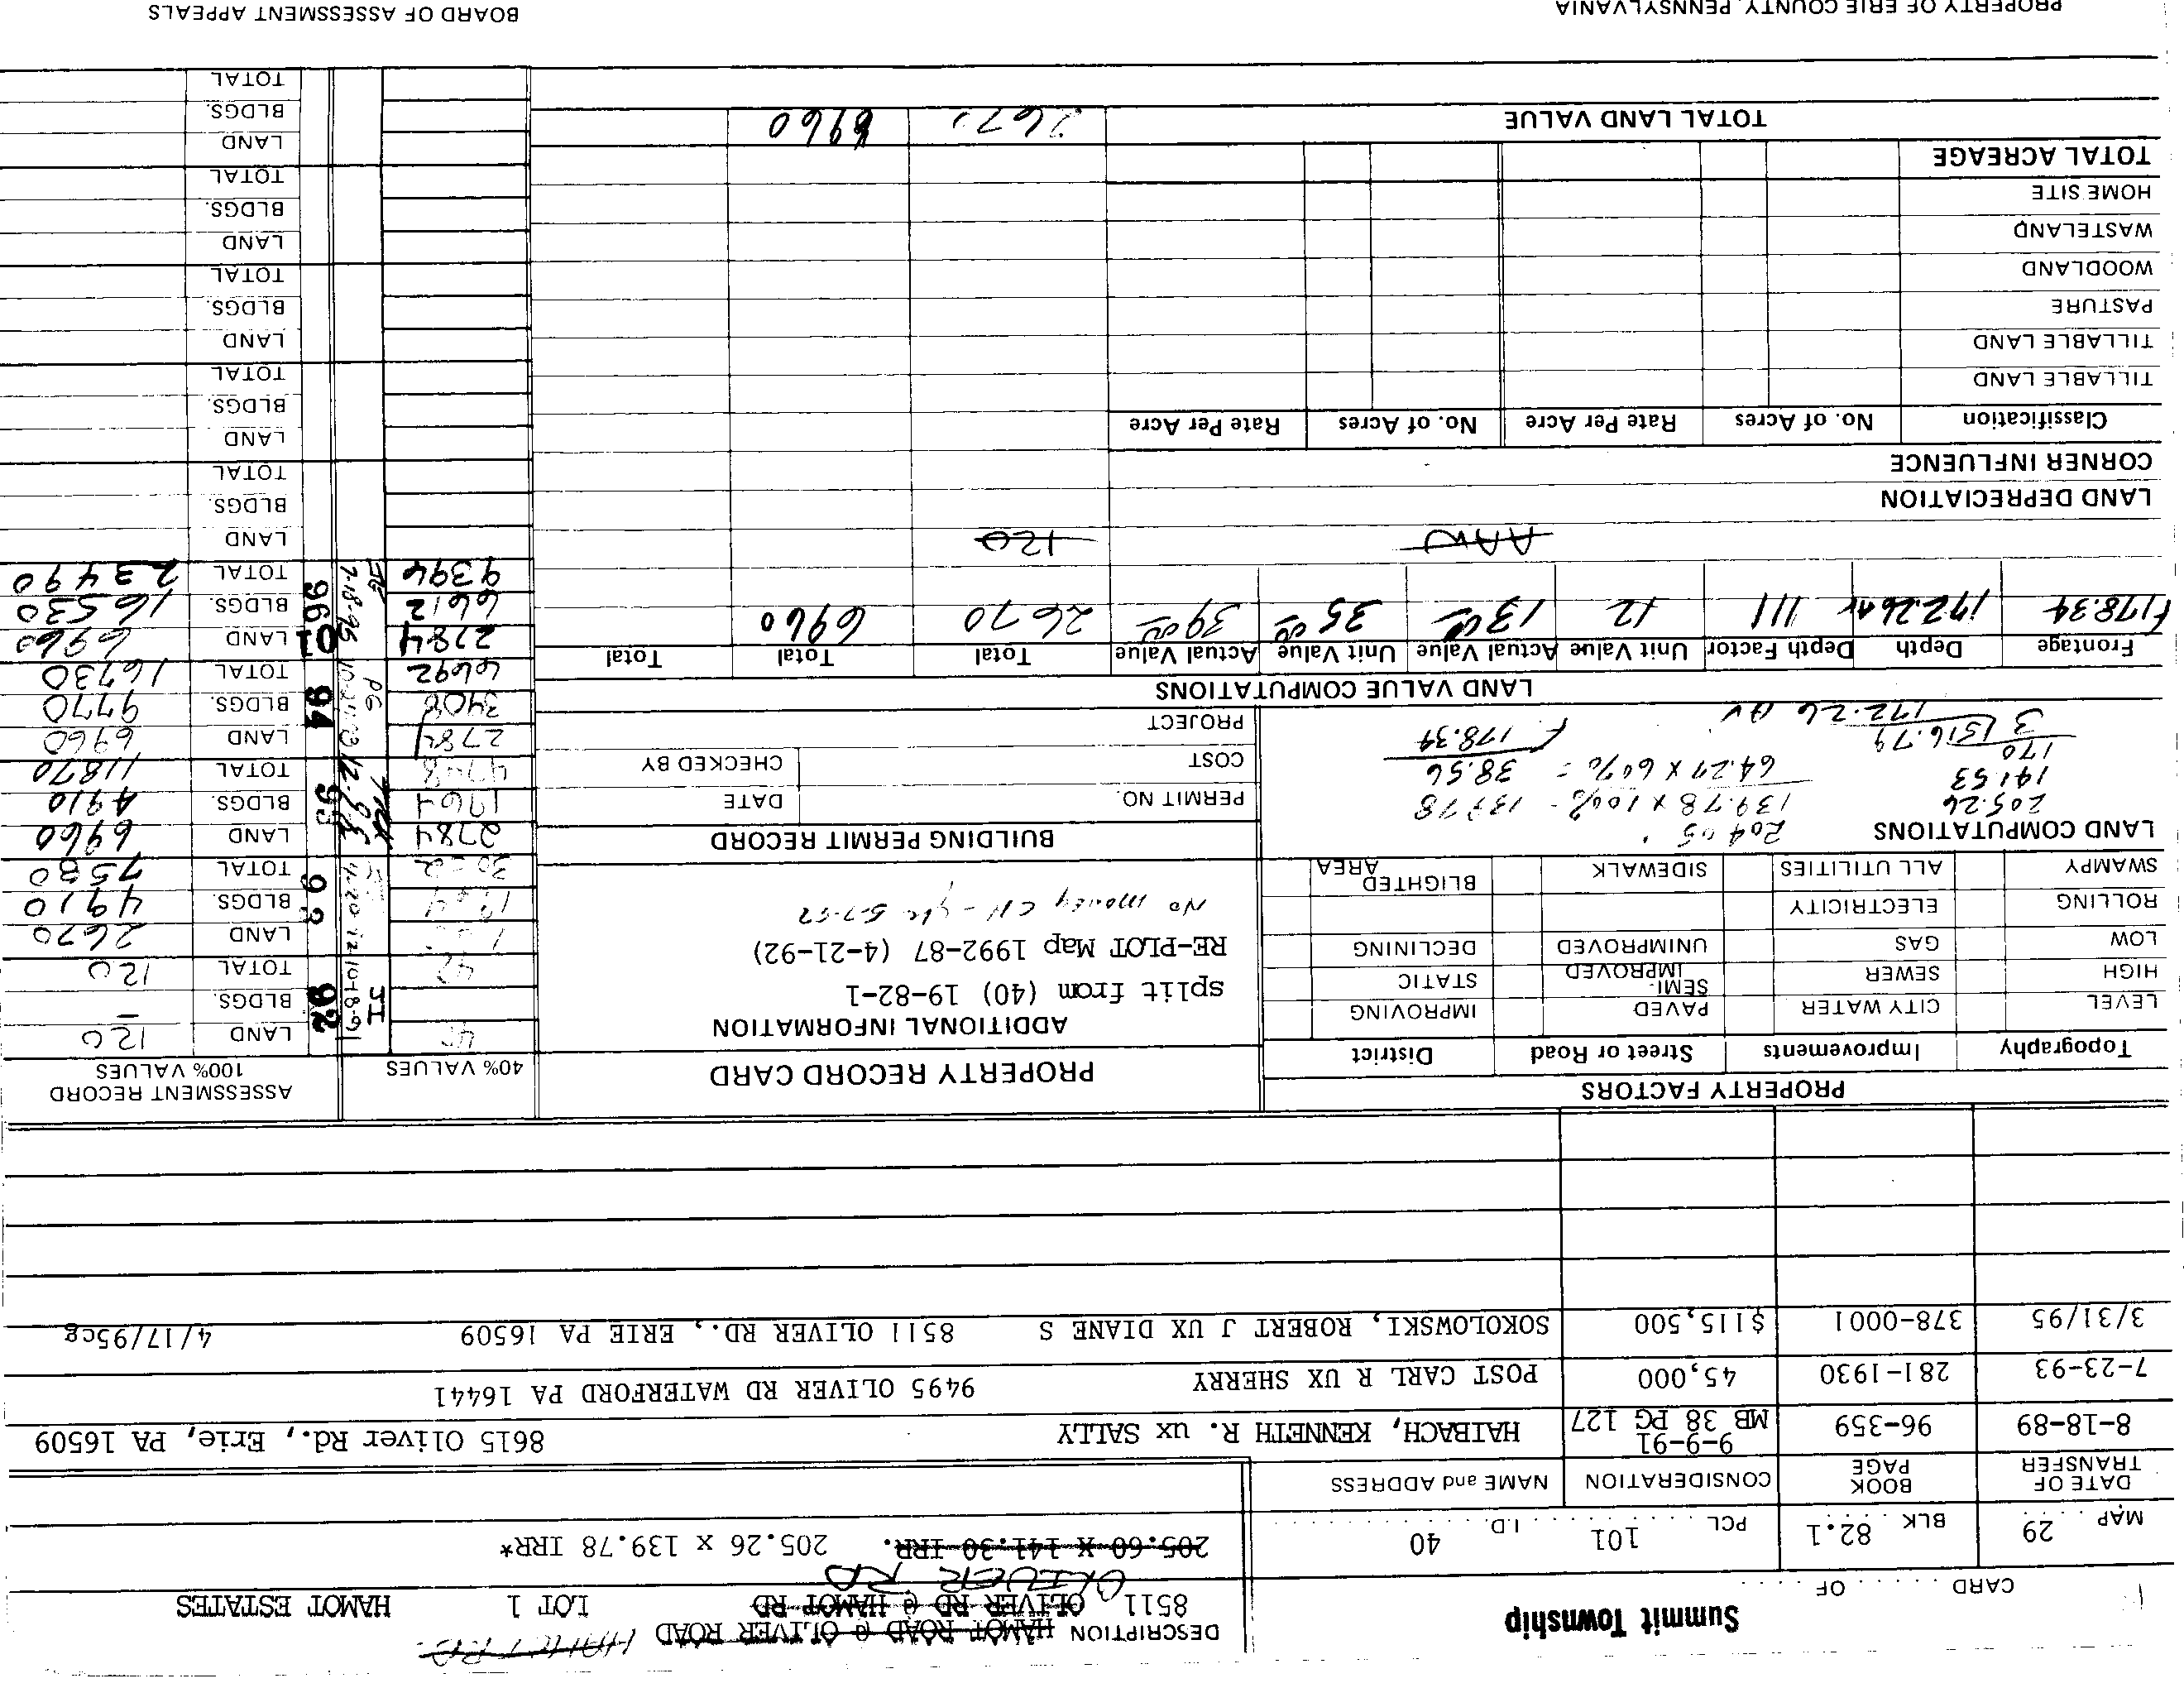 Summit Township
DESCRIPTION HAMOT ROAD @ OLIVER ROAD HAMOT RD
8511 OLIVER RD @ HAMOT RD LOT 1 HAMOT ESTATES
OLIVER RD
CARD ...... OF ......
MAP 29 BLK 82.1 PCL 101 I.D. 40 205.60 X 141.30 IRR. 205.26 x 139.78 IRR*
DATE OF TRANSFER BOOK PAGE CONSIDERATION NAME and ADDRESS
8-18-89 96-359 9-9-91 MB 38 PG 127 HAIBACH, KENNETH R. ux SALLY 8615 Oliver Rd., Erie, PA 16509
7-23-93 281-1930 45,000 POST CARL R UX SHERRY 9495 OLIVER RD WATERFORD PA 16441
3/31/95 378-0001 $115,500 SOKOLOWSKI, ROBERT J UX DIANE S 8511 OLIVER RD., ERIE PA 16509 4/17/95cg
PROPERTY FACTORS
Topography Improvements Street or Road District
LEVEL CITY WATER PAVED IMPROVING
HIGH SEWER SEMI-IMPROVED STATIC
LOW GAS UNIMPROVED DECLINING
ROLLING ELECTRICITY
SWAMPY ALL UTILITIES SIDEWALK BLIGHTED AREA
LAND COMPUTATIONS 204.05
205.26 139.78 x 100% - 139.78
141.53 64.27 x 60% = 38.56
170 F 178.34
3 516.79
172.26 AV
PROPERTY RECORD CARD
ADDITIONAL INFORMATION
split from (40) 19-82-1
RE-PLOT Map 1992-87 (4-21-92)
No money CH
BUILDING PERMIT RECORD
PERMIT NO. DATE
COST CHECKED BY
PROJECT
40% VALUES ASSESSMENT RECORD 100% VALUES
92 LAND 120
JI 10-18-91 BLDGS. -
TOTAL 120
LAND 2670
BLDGS. 4910
TOTAL 7580
2784 LAND 6960
1964 BLDGS. 4910
4748 TOTAL 11870
2784 94 LAND 6960
3908 PG BLDGS. 9770
6692 TOTAL 16730
2784 01 LAND 6960
6612 96 7-18-95 BLDGS. 16530
9394 TOTAL 23490
LAND
BLDGS.
TOTAL
LAND
BLDGS.
TOTAL
LAND
BLDGS.
TOTAL
LAND
BLDGS.
TOTAL
LAND
BLDGS.
TOTAL
LAND VALUE COMPUTATIONS
Frontage Depth Depth Factor Unit Value Actual Value Unit Value Actual Value Total Total Total
F178.34 172.26 AV 111 12 13 00 35 00 39 00 2670 6960
AAW 120
LAND DEPRECIATION
CORNER INFLUENCE
Classification No. of Acres Rate Per Acre No. of Acres Rate Per Acre
TILLABLE LAND
TILLABLE LAND
PASTURE
WOODLAND
WASTELAND
HOME SITE
TOTAL ACREAGE
TOTAL LAND VALUE 2670 6960
PROPERTY OF ERIE COUNTY, PENNSYLVANIA BOARD OF ASSESSMENT APPEALS